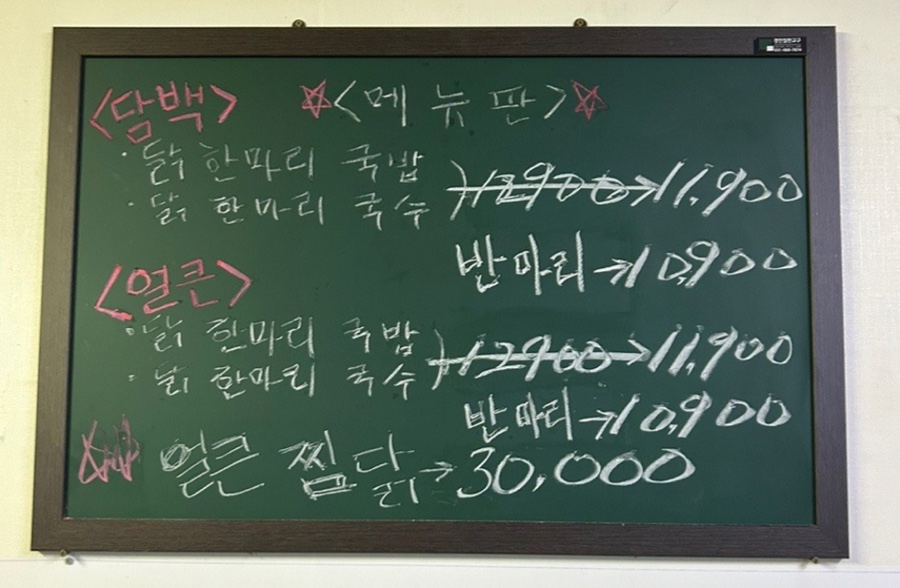 <담백> ☆<메뉴판>☆
· 닭 한마리 국밥
· 닭 한마리 국수 } 12900→11,900
반마리→10,900
<얼큰>
· 닭 한마리 국밥
· 닭 한마리 국수 } 12900→11,900
반마리→10,900
얼큰 찜닭→30,000